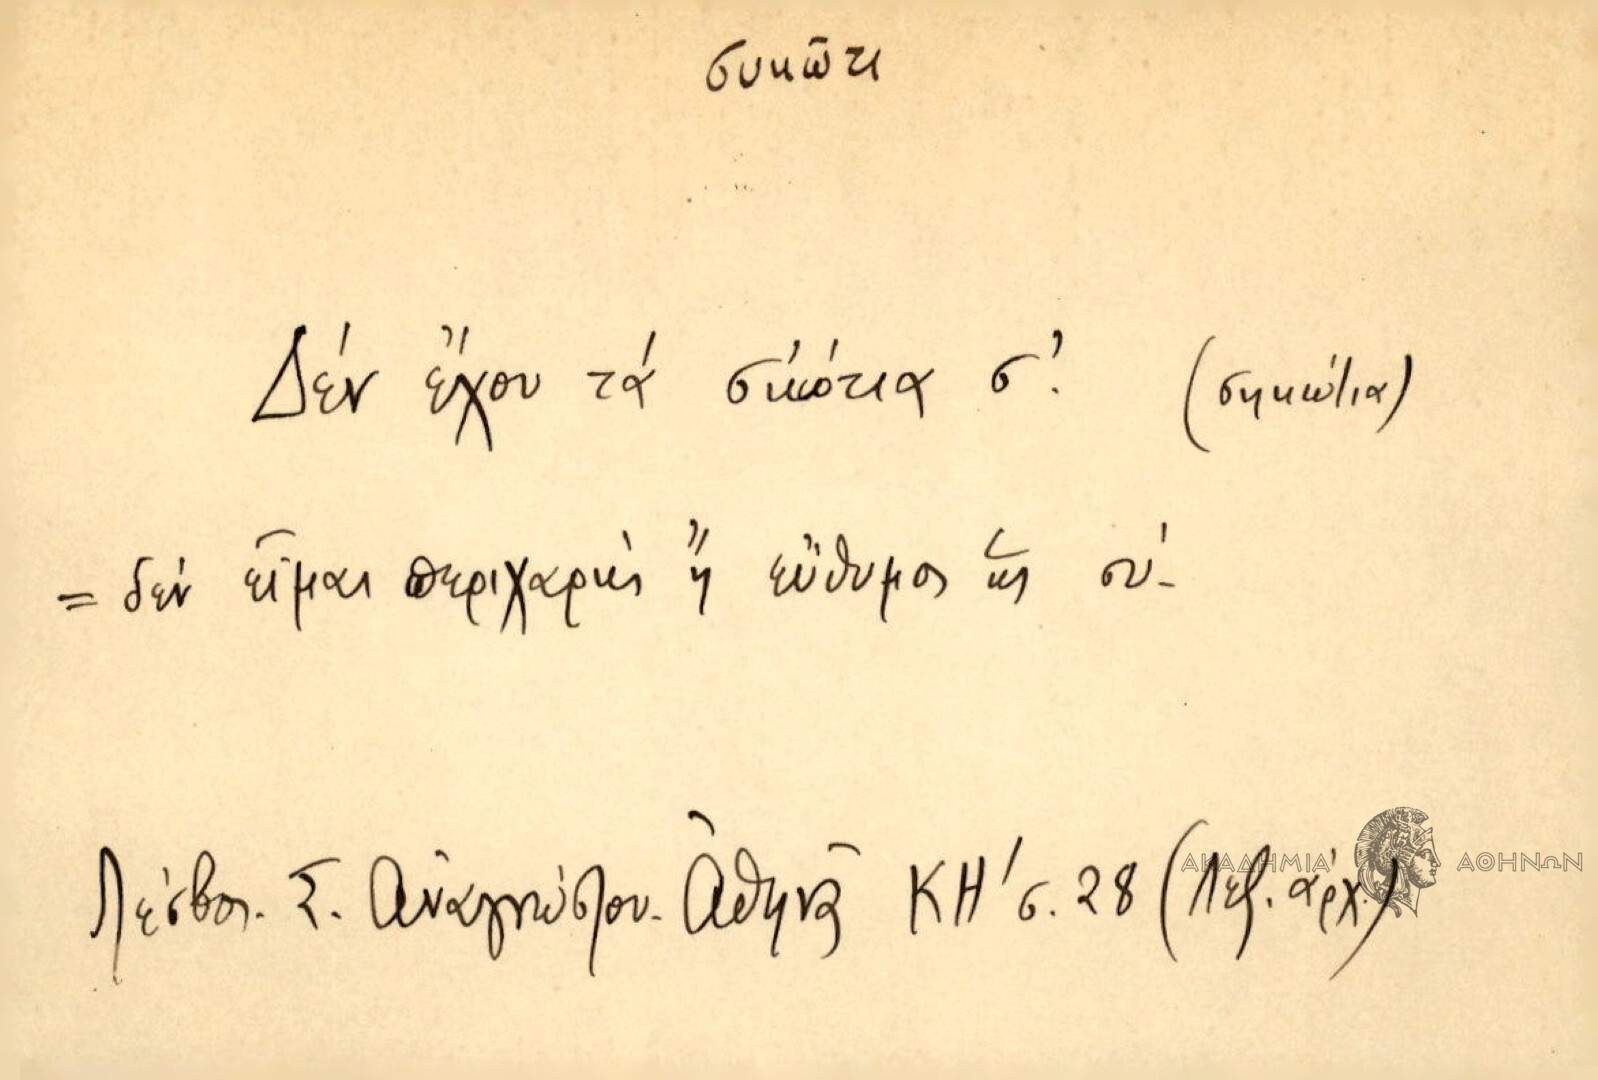 συκῶτι
Δέν ἔχου τά σ'κότια σ'. (σηκώτια)
= δέν εἶμαι περιχαρής ἤ εὔθυμος ὡς σύ.
Λέσβος. Σ. Ἀναγνώστου. Ἀθηνᾶ ΚΗ' σ. 28 (Λεξ. ἀρχ.)
ΑΚΑΔΗΜΙΑ ΑΘΗΝΩΝ